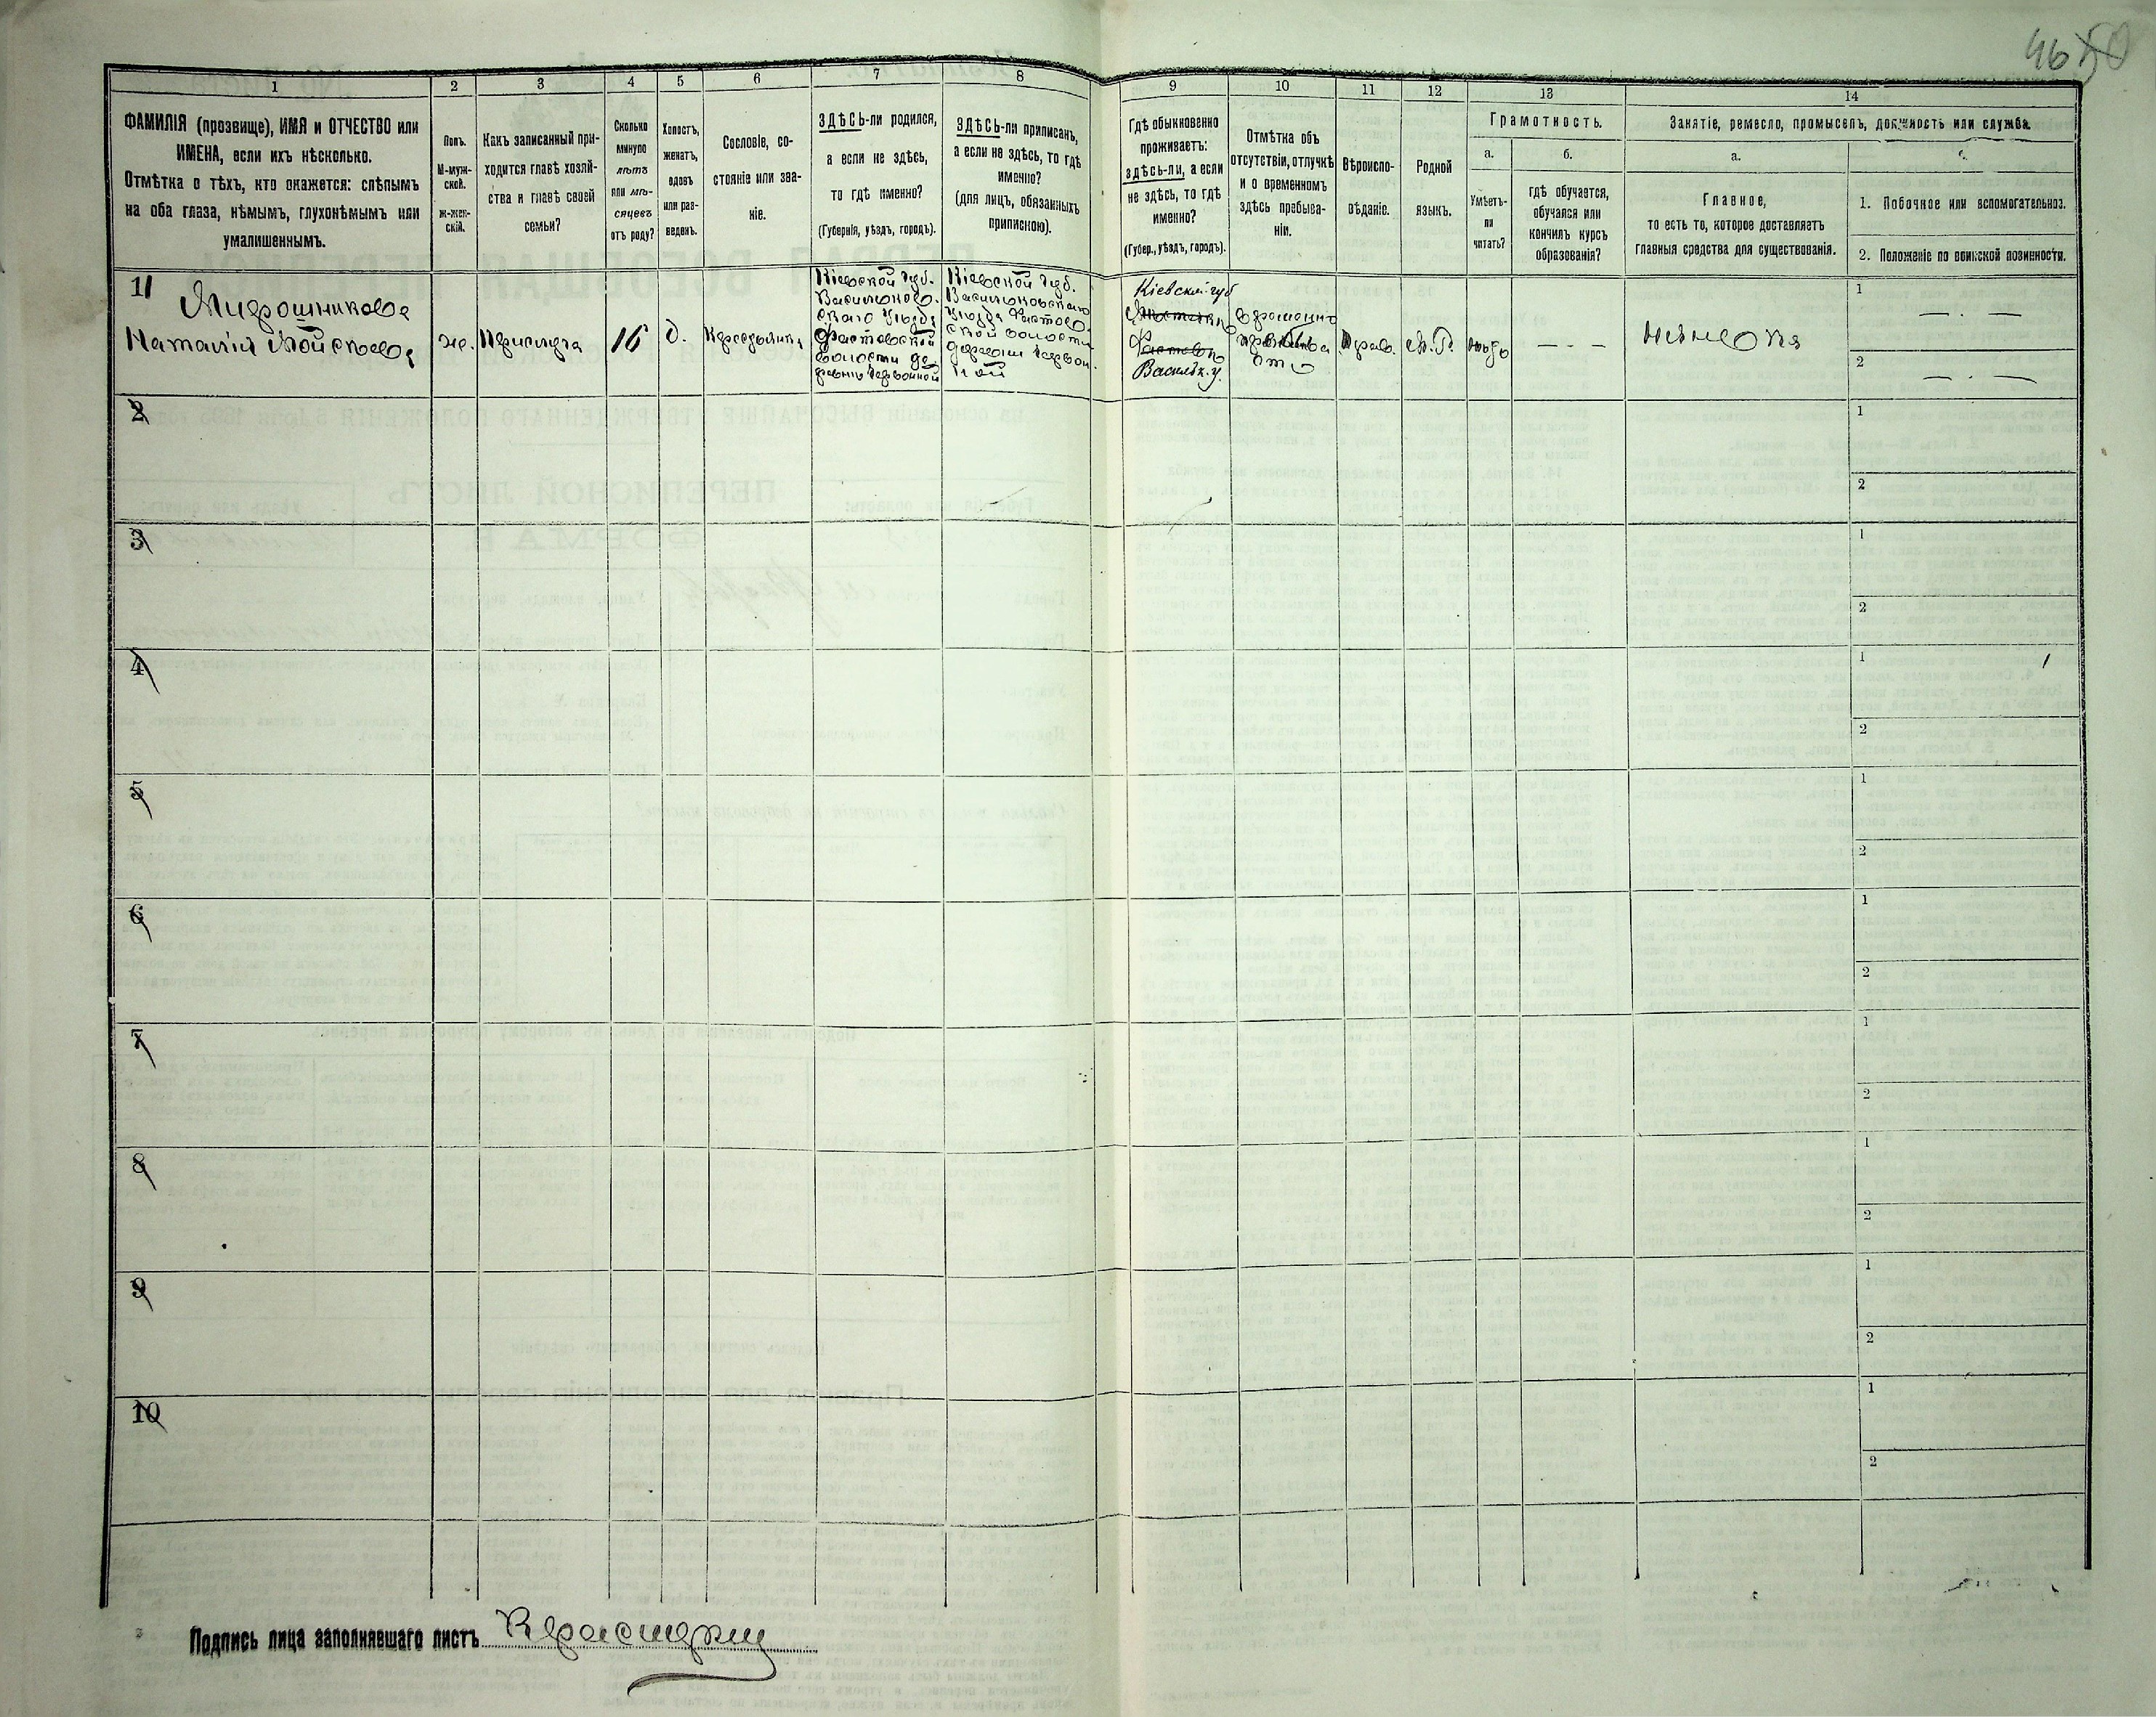 46 50
1
2
3
4
5
6
7
8
9
10
11
12
13
14
ФАМИЛІЯ (прозвище), ИМЯ и ОТЧЕСТВО или
ИМЕНА, если ихъ нѣсколько.
Отмѣтка о тѣхъ, кто окажется: слѣпымъ
на оба глаза, нѣмымъ, глухонѣмымъ или
умалишеннымъ.
Полъ.
М-муж-
ской.
ж-жен-
скій.
Какъ записанный при-
ходится главѣ хозяй-
ства и главѣ своей
семьи?
Сколько
минуло
лѣтъ
или мѣ-
сяцевъ
отъ роду?
Холостъ,
женатъ,
вдовъ
или раз-
веденъ.
Сословіе, со-
стояніе или зва-
ніе.
ЗДѢСЬ-ли родился,
а если не здѣсь,
то гдѣ именно?
(Губернія, уѣздъ, городъ).
ЗДѢСЬ-ли приписанъ,
а если не здѣсь, то гдѣ
именно?
(для лицъ, обязанныхъ
припискою).
Гдѣ обыкновенно
проживаетъ:
здѣсь-ли, а если
не здѣсь, то гдѣ
именно?
(Губер., уѣздъ, городъ).
Отмѣтка объ
отсутствіи, отлучкѣ
и о временномъ
здѣсь пребыва-
ніи.
Вѣроиспо-
вѣданіе.
Родной
языкъ.
Грамотность.
а.
Умѣетъ-
ли
читать?
б.
гдѣ обучается,
обучался или
кончилъ курсъ
образованія?
Занятіе, ремесло, промыселъ, должность или служба.
а.
Главное,
то есть то, которое доставляетъ
главныя средства для существованія.
б.
1. Побочное или вспомогательное.
2. Положеніе по воинской повинности.
1
Мирошникова
Наталія Мойсеева
жс.
Прислуга
16
д.
Крестьянка
Кіевской губ.
Васильков-
скаго уѣзда
Фастовской
волости де
ревни Червонной
Кіевской губ.
Васильковскаго
уѣзда Фастов-
ской волости
деревни Червон-
ной
Кіевской губ
Васильк. у.
временно
Прав.
М. Р.
нѣтъ
— - -
нянька
1
— . —
2
— . —
2
1
2
3
1
2
4
1
2
5
1
2
6
1
2
7
1
2
8
1
2
9
1
2
10
1
2
Подпись лица заполнявшаго листъ